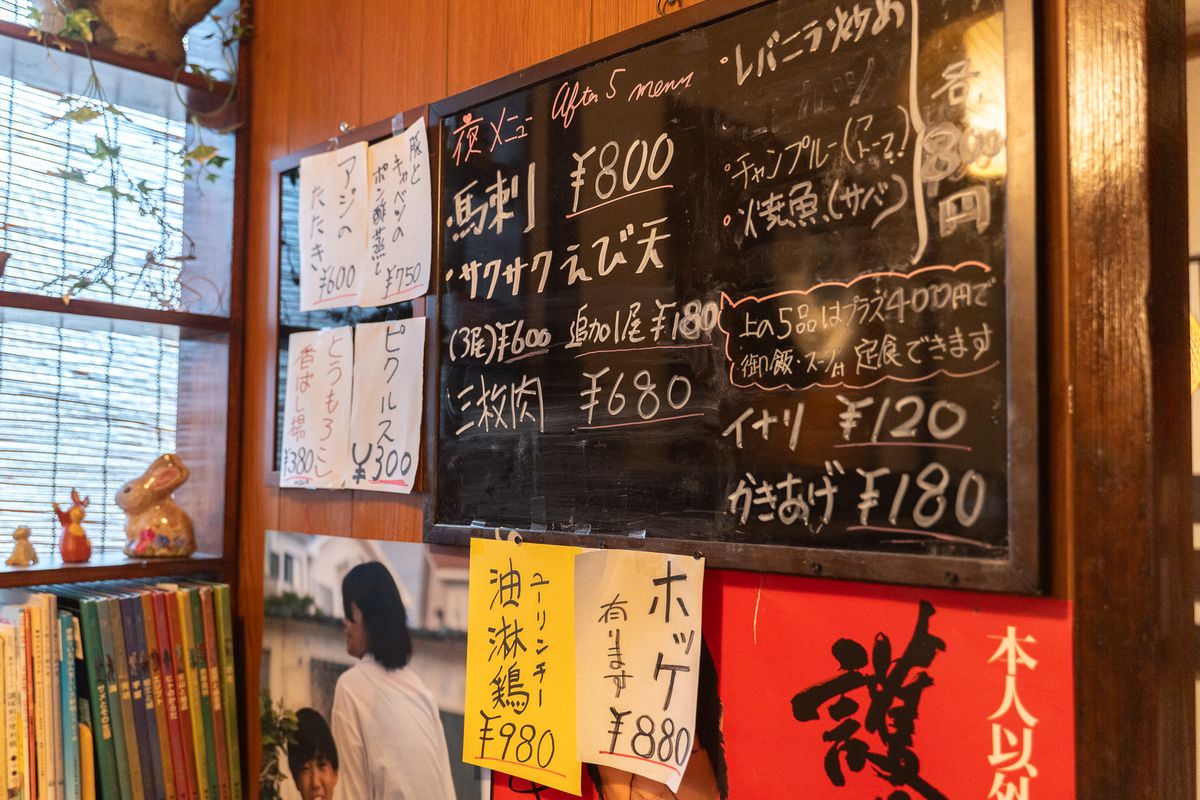 豚と
キャベツの
ポン酢蒸し
¥750
アジの
たたき
¥600
とうもろこし
香ばし揚
¥380
ピクルス
¥300
夜メニュー After 5 menu
・馬刺 ¥800
・サクサクえび天
(3尾)¥600 追加1尾¥180
三枚肉 ¥680
・レバニラ炒め
・チャンプルー
・焼魚(サバ)
各
800
円
上の5品はプラス400円で
御飯・スープ付 定食できます
イナリ ¥120
かきあげ ¥180
ユーリンチー
油淋鶏
¥980
ホッケ
有ります
¥880
護
本人以外